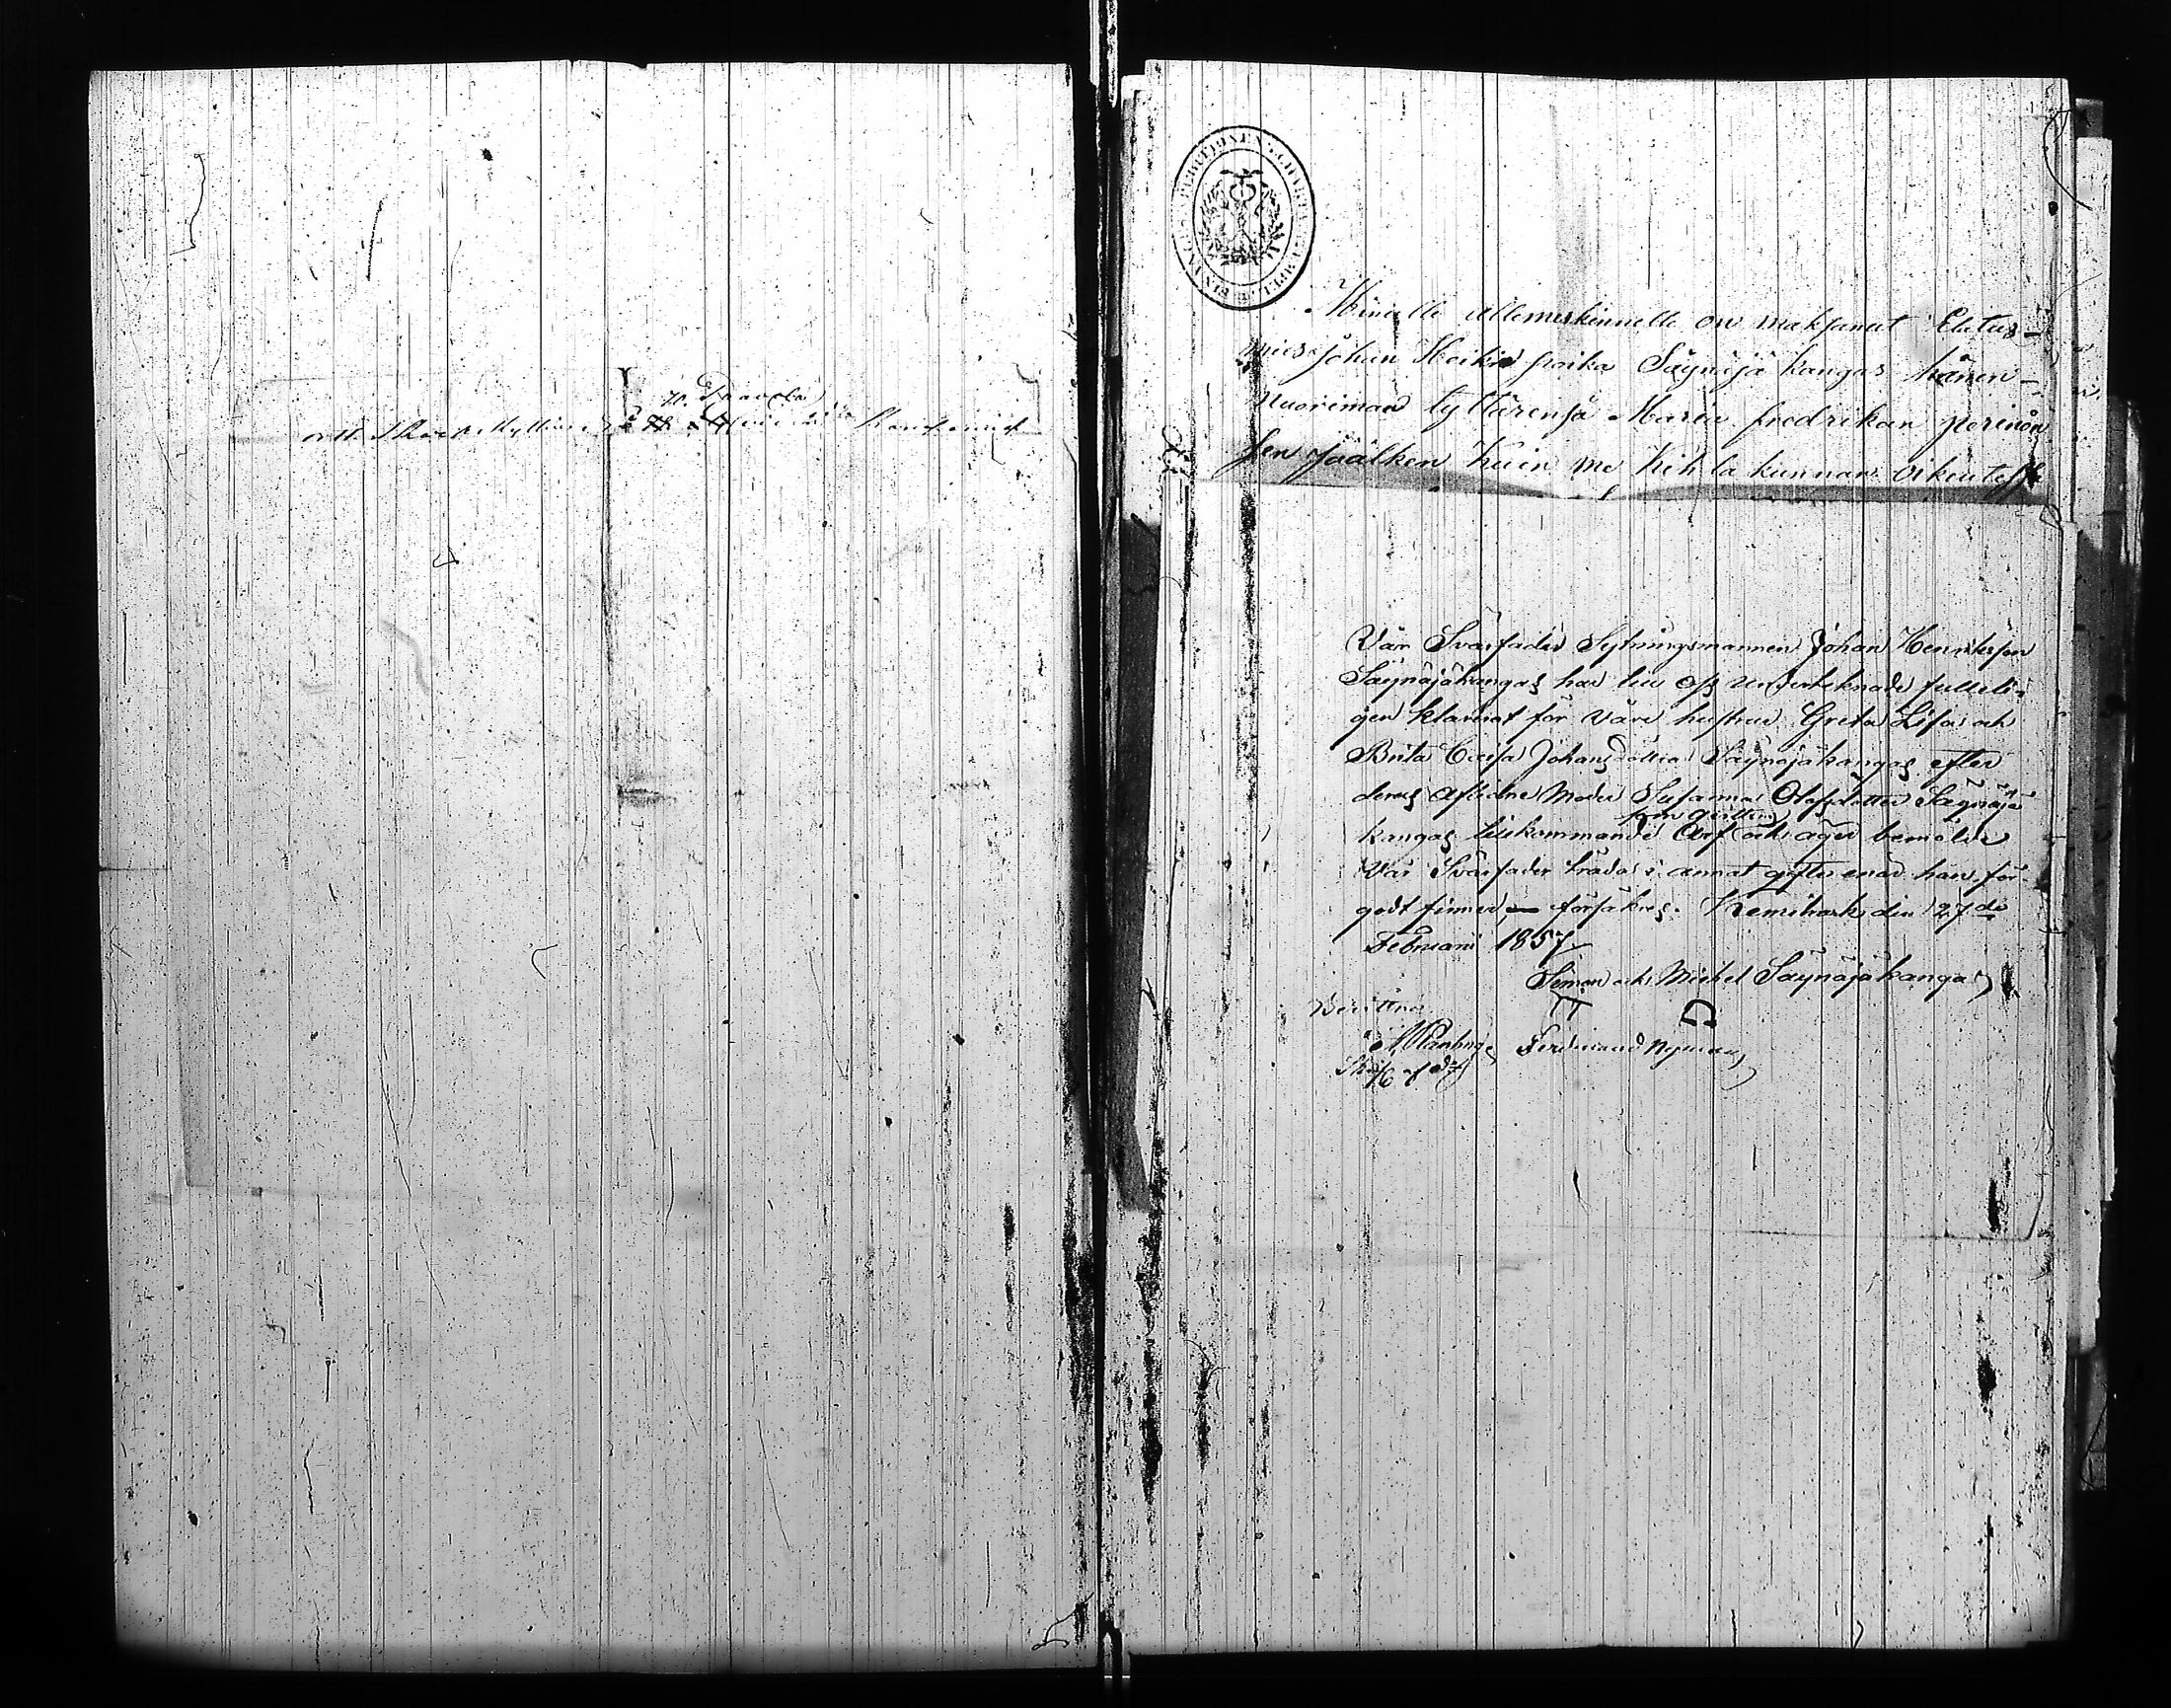 Minulle allemerkinnelle on maksanut Elatus-
mies Johan Heikin poika Säynäjäkangas hänen-
Nuoriman tyttärensä Maria fredrikan perinön
sen jäälken kuin me kihlakunnan oikeutessa
Vår Svärfader Sytningsmannen Johan Henriksson
Säynäjäkangas har till oss undertecknade fulleli-
gen klarerat för våre hustrur Greta Lisa och
Brita Caisa Johansdöttrar Säynäjäkangas efter
deras aflidne Moder Susanna Olofsdotter Säynäjä
kangas tillkommande Arf och äger bemälde
Vår Svärfader träda i annat gifte enär han för
godt finner, — försäkras. Kemiträsk den 27de
Februarii 1857
Simon och Michel Säynäjäkangas
Bevittna
Ferdinand Nyman